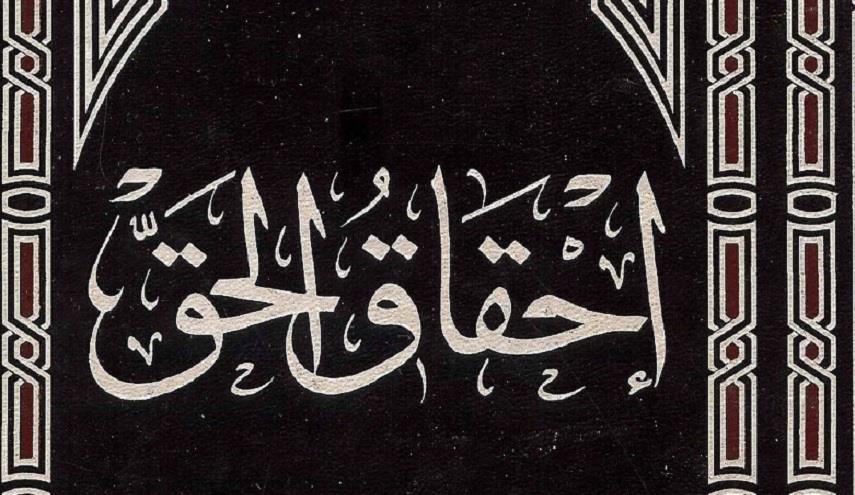 إحْقَاقُ الحَقّ